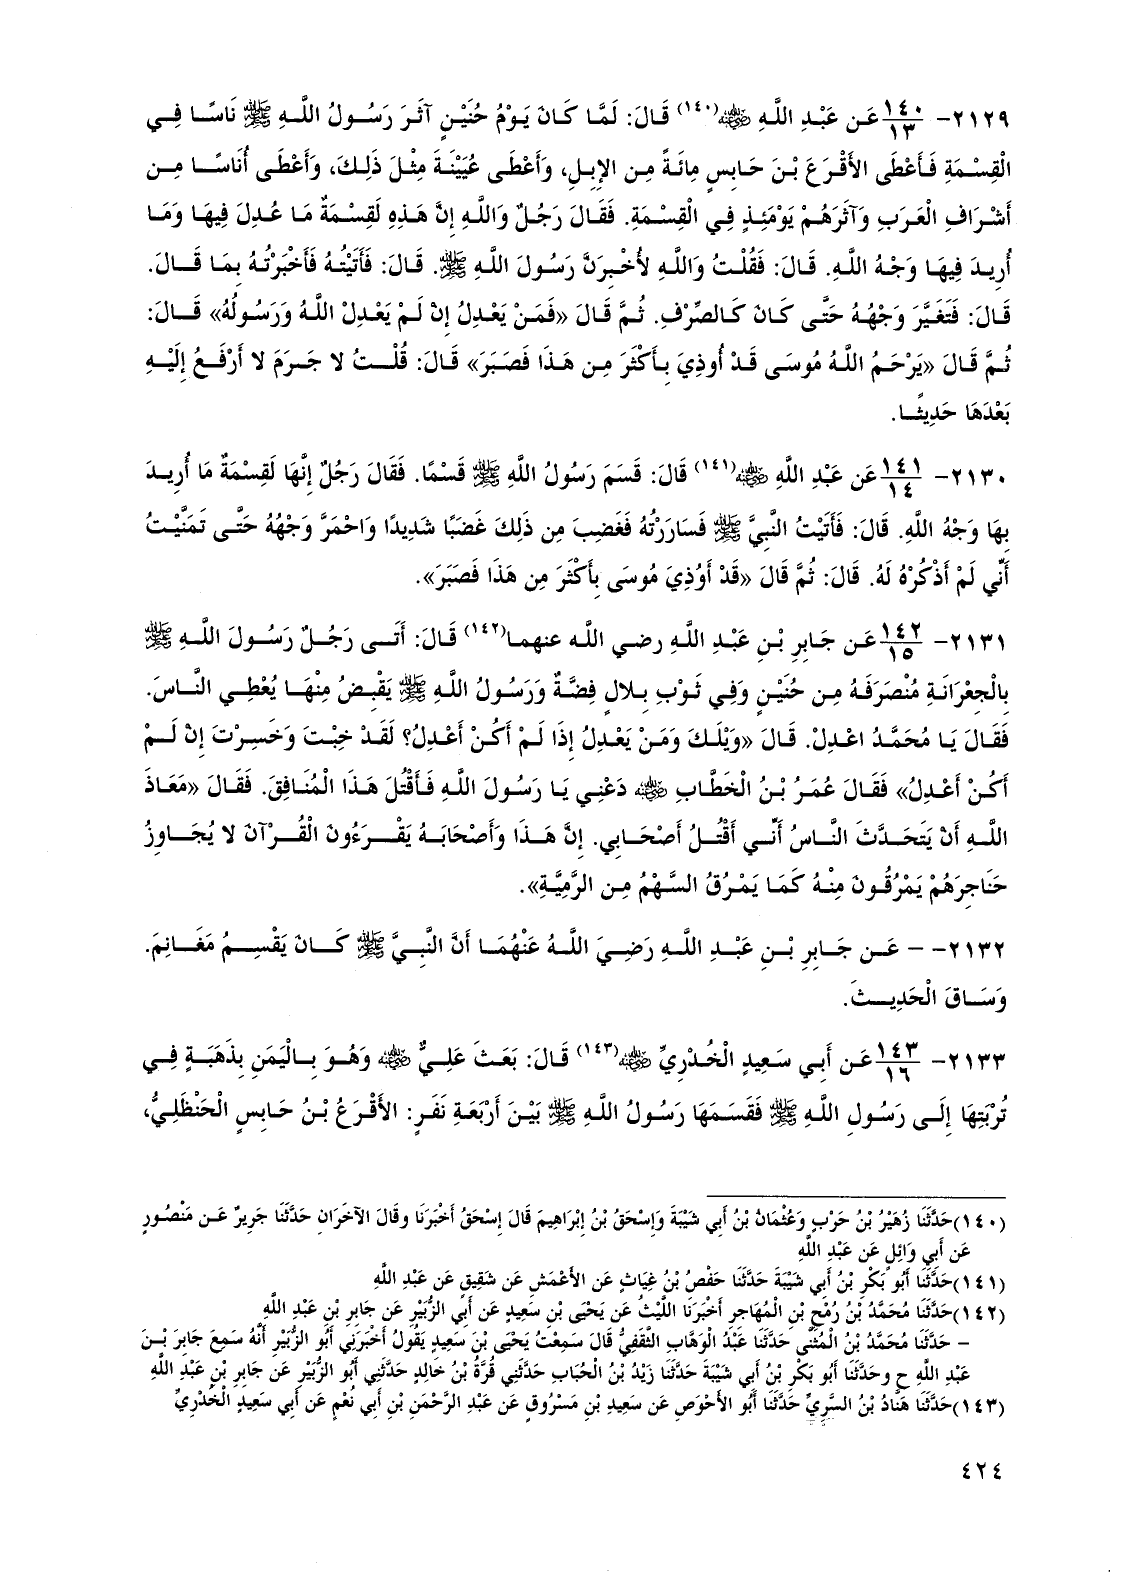 ٢١٢٩- ١٤٠/١٣ عَن عَبْدِ اللَّهِ ﷺ(١٤٠) قَالَ: لَمَّا كَانَ يَوْمُ حُنَيْنٍ آثَرَ رَسُولُ اللَّهِ ﷺ نَاسًا فِي
الْقِسْمَةِ فَأَعْطَى الأَقْرَعَ بْنَ حَابِسٍ مِائَةً مِن الإِبِلِ، وَأَعْطَى عُيَيْنَةَ مِثْلَ ذَلِكَ، وَأَعْطَى أُنَاسًا مِن
أَشْرَافِ الْعَرَبِ وَآثَرَهُمْ يَوْمَئِذٍ فِي الْقِسْمَةِ. فَقَالَ رَجُلٌ وَاللَّهِ إِنَّ هَذِهِ لَقِسْمَةٌ مَا عُدِلَ فِيهَا وَمَا
أُرِيدَ فِيهَا وَجْهُ اللَّهِ. قَالَ: فَقُلْتُ وَاللَّهِ لأُخْبِرَنَّ رَسُولَ اللَّهِ ﷺ. قَالَ: فَأَتَيْتُهُ فَأَخْبَرْتُهُ بِمَا قَالَ.
قَالَ: فَتَغَيَّرَ وَجْهُهُ حَتَّى كَانَ كَالصِّرْفِ. ثُمَّ قَالَ «فَمَنْ يَعْدِلُ إِنْ لَمْ يَعْدِلْ اللَّهُ وَرَسُولُهُ» قَالَ:
ثُمَّ قَالَ «يَرْحَمُ اللَّهُ مُوسَى قَدْ أُوذِيَ بِأَكْثَرَ مِن هَذَا فَصَبَرَ» قَالَ: قُلْتُ لا جَرَمَ لا أَرْفَعُ إِلَيْهِ
بَعْدَهَا حَدِيثًا.
٢١٣٠- ١٤١/١٤ عَن عَبْدِ اللَّهِ ﷺ(١٤١) قَالَ: قَسَمَ رَسُولُ اللَّهِ ﷺ قَسْمًا. فَقَالَ رَجُلٌ إِنَّهَا لَقِسْمَةٌ مَا أُرِيدَ
بِهَا وَجْهُ اللَّهِ. قَالَ: فَأَتَيْتُ النَّبِيَّ ﷺ فَسَارَرْتُهُ فَغَضِبَ مِن ذَلِكَ غَضَبًا شَدِيدًا وَاحْمَرَّ وَجْهُهُ حَتَّى تَمَنَّيْتُ
أَنِّي لَمْ أَذْكُرْهُ لَهُ. قَالَ: ثُمَّ قَالَ «قَدْ أَوُذِيَ مُوسَى بِأَكْثَرَ مِن هَذَا فَصَبَرَ».
٢١٣١- ١٤٢/١٥ عَن جَابِرِ بْنِ عَبْدِ اللَّهِ رضي الله عنهما(١٤٢) قَالَ: أَتَى رَجُلٌ رَسُولَ اللَّهِ ﷺ
بِالْجِعْرَانَةِ مُنْصَرَفَهُ مِن حُنَيْنٍ وَفِي ثَوْبِ بِلالٍ فِضَّةٌ وَرَسُولُ اللَّهِ ﷺ يَقْبِضُ مِنْهَا يُعْطِي النَّاسَ.
فَقَالَ يَا مُحَمَّدُ اعْدِلْ. قَالَ «وَيْلَكَ وَمَنْ يَعْدِلُ إِذَا لَمْ أَكُنْ أَعْدِلُ؟ لَقَدْ خِبْتَ وَخَسِرْتَ إِنْ لَمْ
أَكُنْ أَعْدِلُ» فَقَالَ عُمَرُ بْنُ الْخَطَّابِ ﷺ دَعْنِي يَا رَسُولَ اللَّهِ فَأَقْتُلَ هَذَا الْمُنَافِقَ. فَقَالَ «مَعَاذَ
اللَّهِ أَنْ يَتَحَدَّثَ النَّاسُ أَنِّي أَقْتُلُ أَصْحَابِي. إِنَّ هَذَا وَأَصْحَابَهُ يَقْرَءُونَ الْقُرْآنَ لا يُجَاوِزُ
حَنَاجِرَهُمْ يَمْرُقُونَ مِنْهُ كَمَا يَمْرُقُ السَّهْمُ مِن الرَّمِيَّةِ».
٢١٣٢- - عَن جَابِرِ بْنِ عَبْدِ اللَّهِ رَضِيَ اللَّهُ عَنْهُمَا أَنَّ النَّبِيَّ ﷺ كَانَ يَقْسِمُ مَغَانِمَ.
وَسَاقَ الْحَدِيثَ.
٢١٣٣- ١٤٣/١٦ عَن أَبِي سَعِيدٍ الْخُدْرِيِّ ﷺ(١٤٣) قَالَ: بَعَثَ عَلِيٌّ ﷺ وَهُوَ بِالْيَمَنِ بِذَهَبَةٍ فِي
تُرْبَتِهَا إِلَى رَسُولِ اللَّهِ ﷺ فَقَسَمَهَا رَسُولُ اللَّهِ ﷺ بَيْنَ أَرْبَعَةِ نَفَرٍ: الأَقْرَعُ بْنُ حَابِسٍ الْحَنْظَلِيُّ،
(١٤٠) حَدَّثَنَا زُهَيْرُ بْنُ حَرْبٍ وَعُثْمَانُ بْنُ أَبِي شَيْبَةَ وَإِسْحَقُ بْنُ إِبْرَاهِيمَ قَالَ إِسْحَقُ أَخْبَرَنَا وقَالَ الآخَرَانِ حَدَّثَنَا جَرِيرٌ عَن مَنْصُورٍ
عَن أَبِي وَائِلٍ عَن عَبْدِ اللَّهِ
(١٤١) حَدَّثَنَا أَبُو بَكْرِ بْنُ أَبِي شَيْبَةَ حَدَّثَنَا حَفْصُ بْنُ غِيَاثٍ عَن الأَعْمَشِ عَن شَقِيقٍ عَن عَبْدِ اللَّهِ
(١٤٢) حَدَّثَنَا مُحَمَّدُ بْنُ رُمْحِ بْنِ الْمُهَاجِرِ أَخْبَرَنَا اللَّيْثُ عَن يَحْيَى بْنِ سَعِيدٍ عَن أَبِي الزُّبَيْرِ عَن جَابِرِ بْنِ عَبْدِ اللَّهِ
- حَدَّثَنَا مُحَمَّدُ بْنُ الْمُثَنَّى حَدَّثَنَا عَبْدُ الْوَهَّابِ الثَّقَفِيُّ قَالَ سَمِعْتُ يَحْيَى بْنَ سَعِيدٍ يَقُولُ أَخْبَرَنِي أَبُو الزُّبَيْرِ أَنَّهُ سَمِعَ جَابِرَ بْنَ
عَبْدِ اللَّهِ ح وحَدَّثَنَا أَبُو بَكْرِ بْنُ أَبِي شَيْبَةَ حَدَّثَنَا زَيْدُ بْنُ الْحُبَابِ حَدَّثَنِي قُرَّةُ بْنُ خَالِدٍ حَدَّثَنِي أَبُو الزُّبَيْرِ عَن جَابِرِ بْنِ عَبْدِ اللَّهِ
(١٤٣) حَدَّثَنَا هَنَّادُ بْنُ السَّرِيِّ حَدَّثَنَا أَبُو الأَحْوَصِ عَن سَعِيدِ بْنِ مَسْرُوقٍ عَن عَبْدِ الرَّحْمَنِ بْنِ أَبِي نُعْمٍ عَن أَبِي سَعِيدٍ الْخُدْرِيِّ
٤٢٤